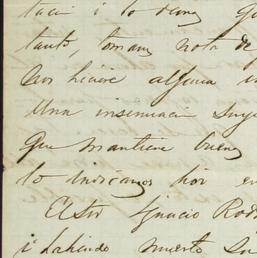 taci i lo demas
tanto, tomara nota de
les hiciere alguna
Una insinuacion
que mantiene buena
lo indicamos hoi en
El Sr Ignacio Rod
i habiendo muerto su